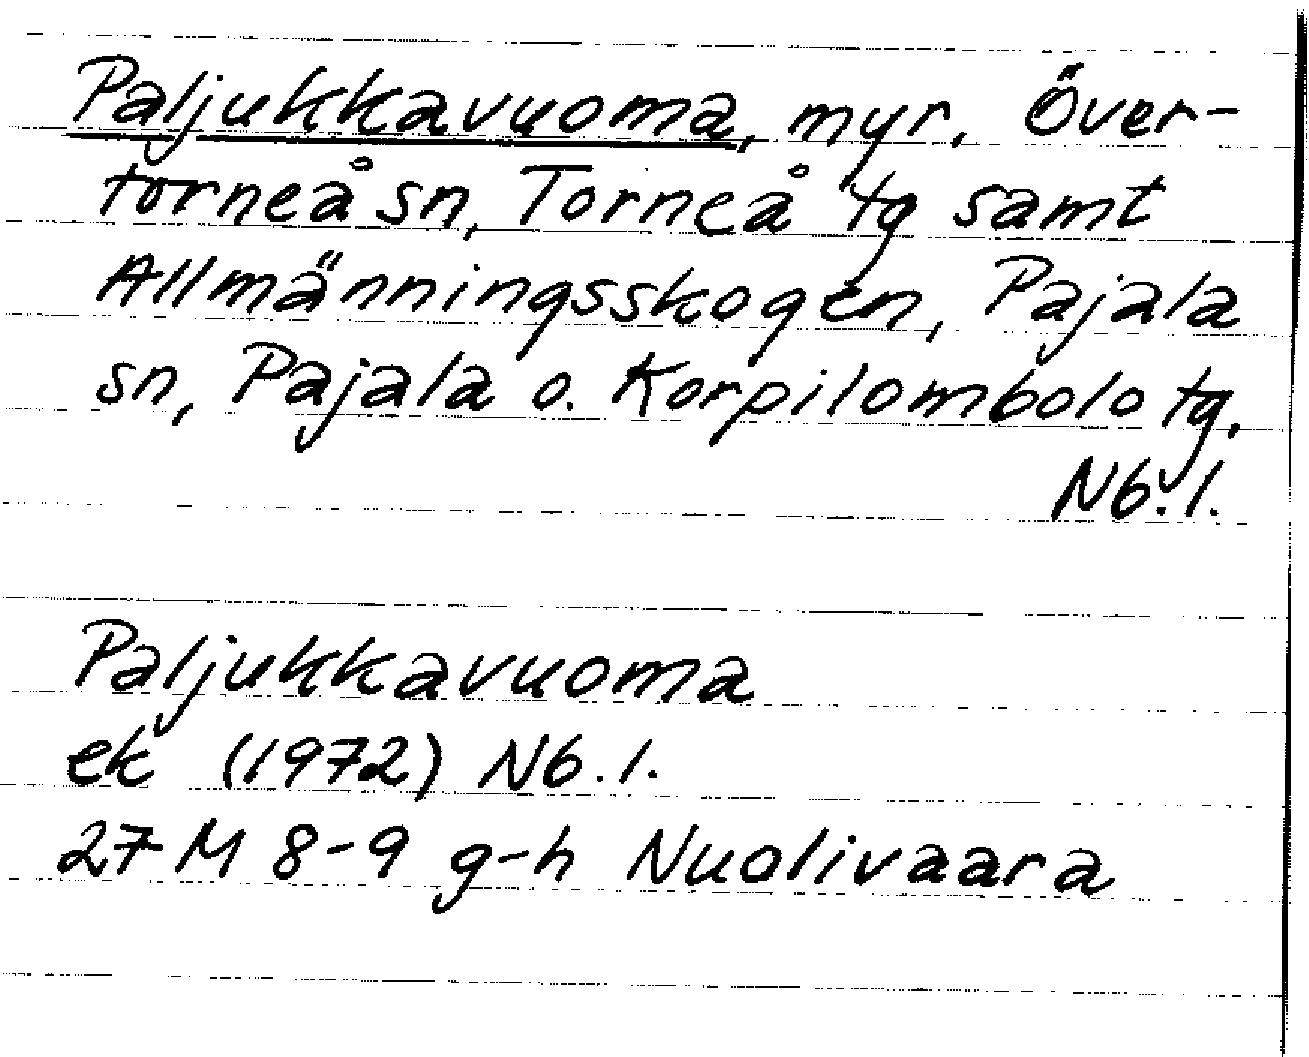 Paljukkavuoma, myr, Över-
torneå sn, Torneå tg samt
Allmänningsskogen, Pajala
sn, Pajala o. Korpilombolo tg.
Nb. l.
Paljukkavuoma
ek (1972) Nb. l.
27 M 8-9 g-h Nuolivaara